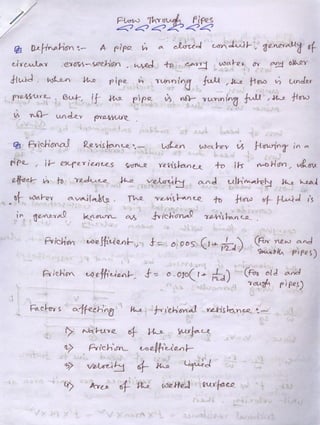 Flow Through Pipes
Definition :- A pipe is a closed conduit, generally of
circular cross-section, used to carry water or any other
fluid. when the pipe is running full, the flow is under
pressure. But, if the pipe is not running full, the flow
is not under pressure.
Frictional Resistance :- when water is flowing in a
pipe, it experiences some resistance to its motion, whose
effect is to reduce the velocity and ultimately the head
of water available. The resistance to flow of fluid is
in general known as frictional resistance.
Friction coefficient, f = 0.005 (For new and
smooth pipes)
Friction coefficient, f = (For old and
rough pipes)
Factors affecting the frictional resistance :-
Nature of the surface
Friction coefficient
velocity of the liquid
Area of the wetted surface